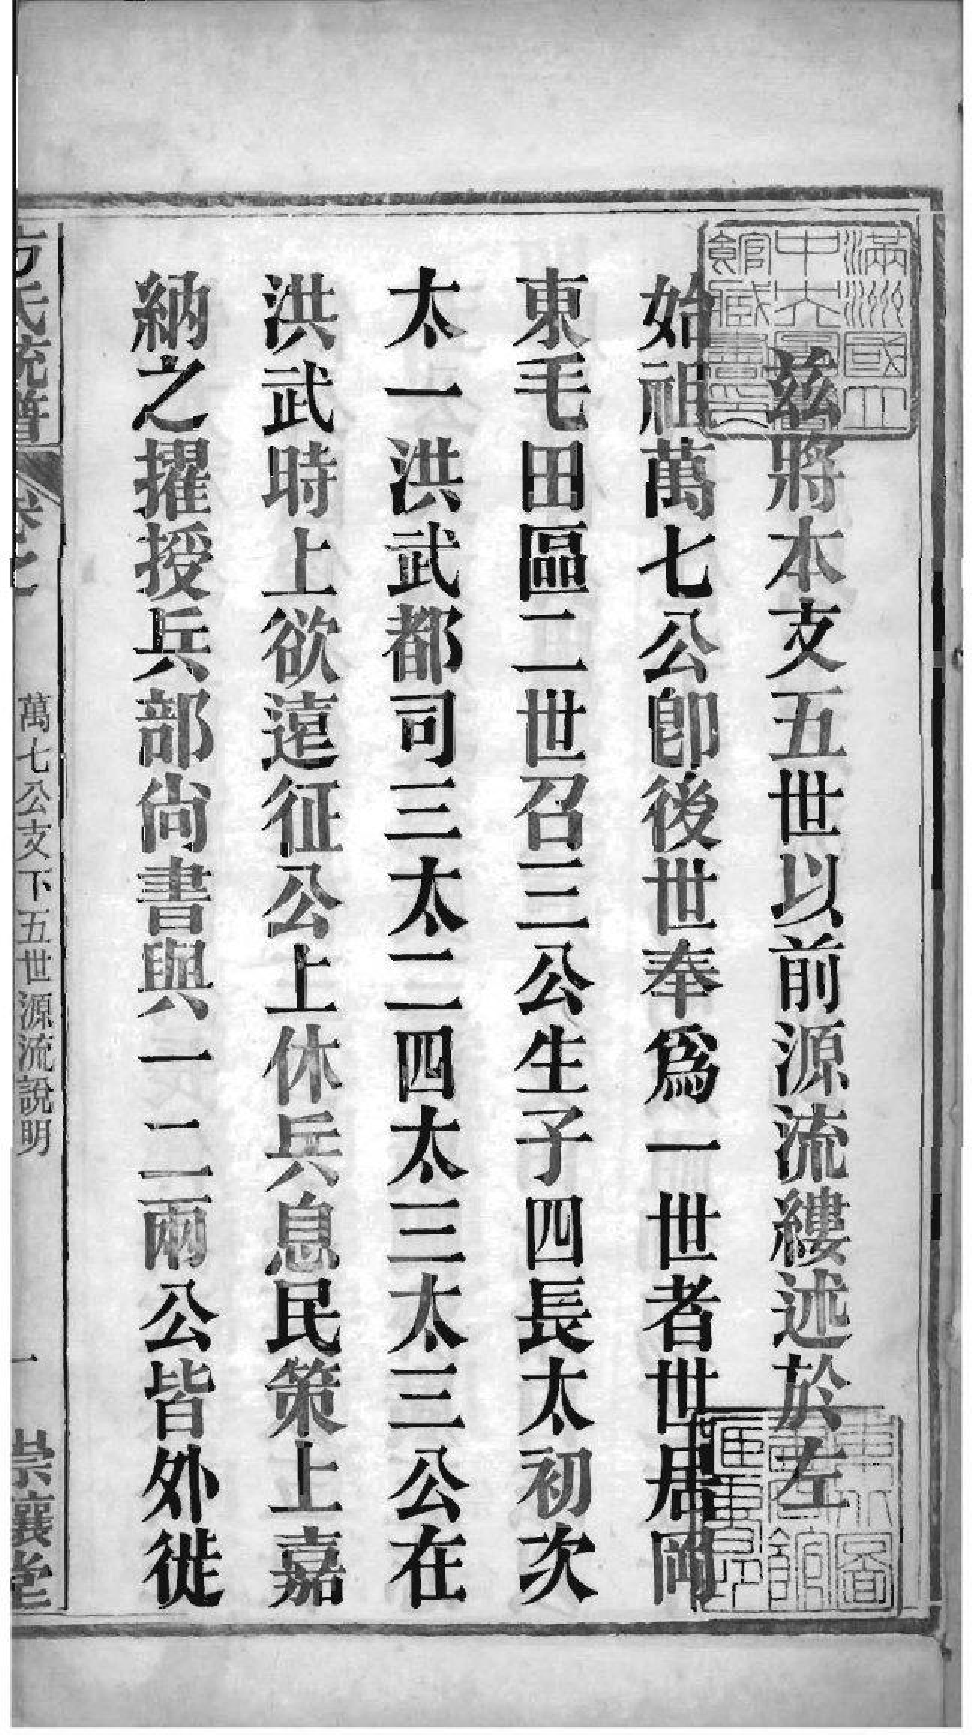 茲將本支五世以前源流縷述於左
始祖萬七公卽後世奉爲一世者世居岡
東毛田區二世召三公生子四長太初次
太一洪武都司三太二四太三太三公在
洪武時上欲遠征公上休兵息民策上嘉
納之擢授兵部尙書與一二兩公皆外徙
方氏統譜
卷之
萬七公支下五世源流說明
一
崇讓堂
滿洲國立
中央圖書
館藏書之